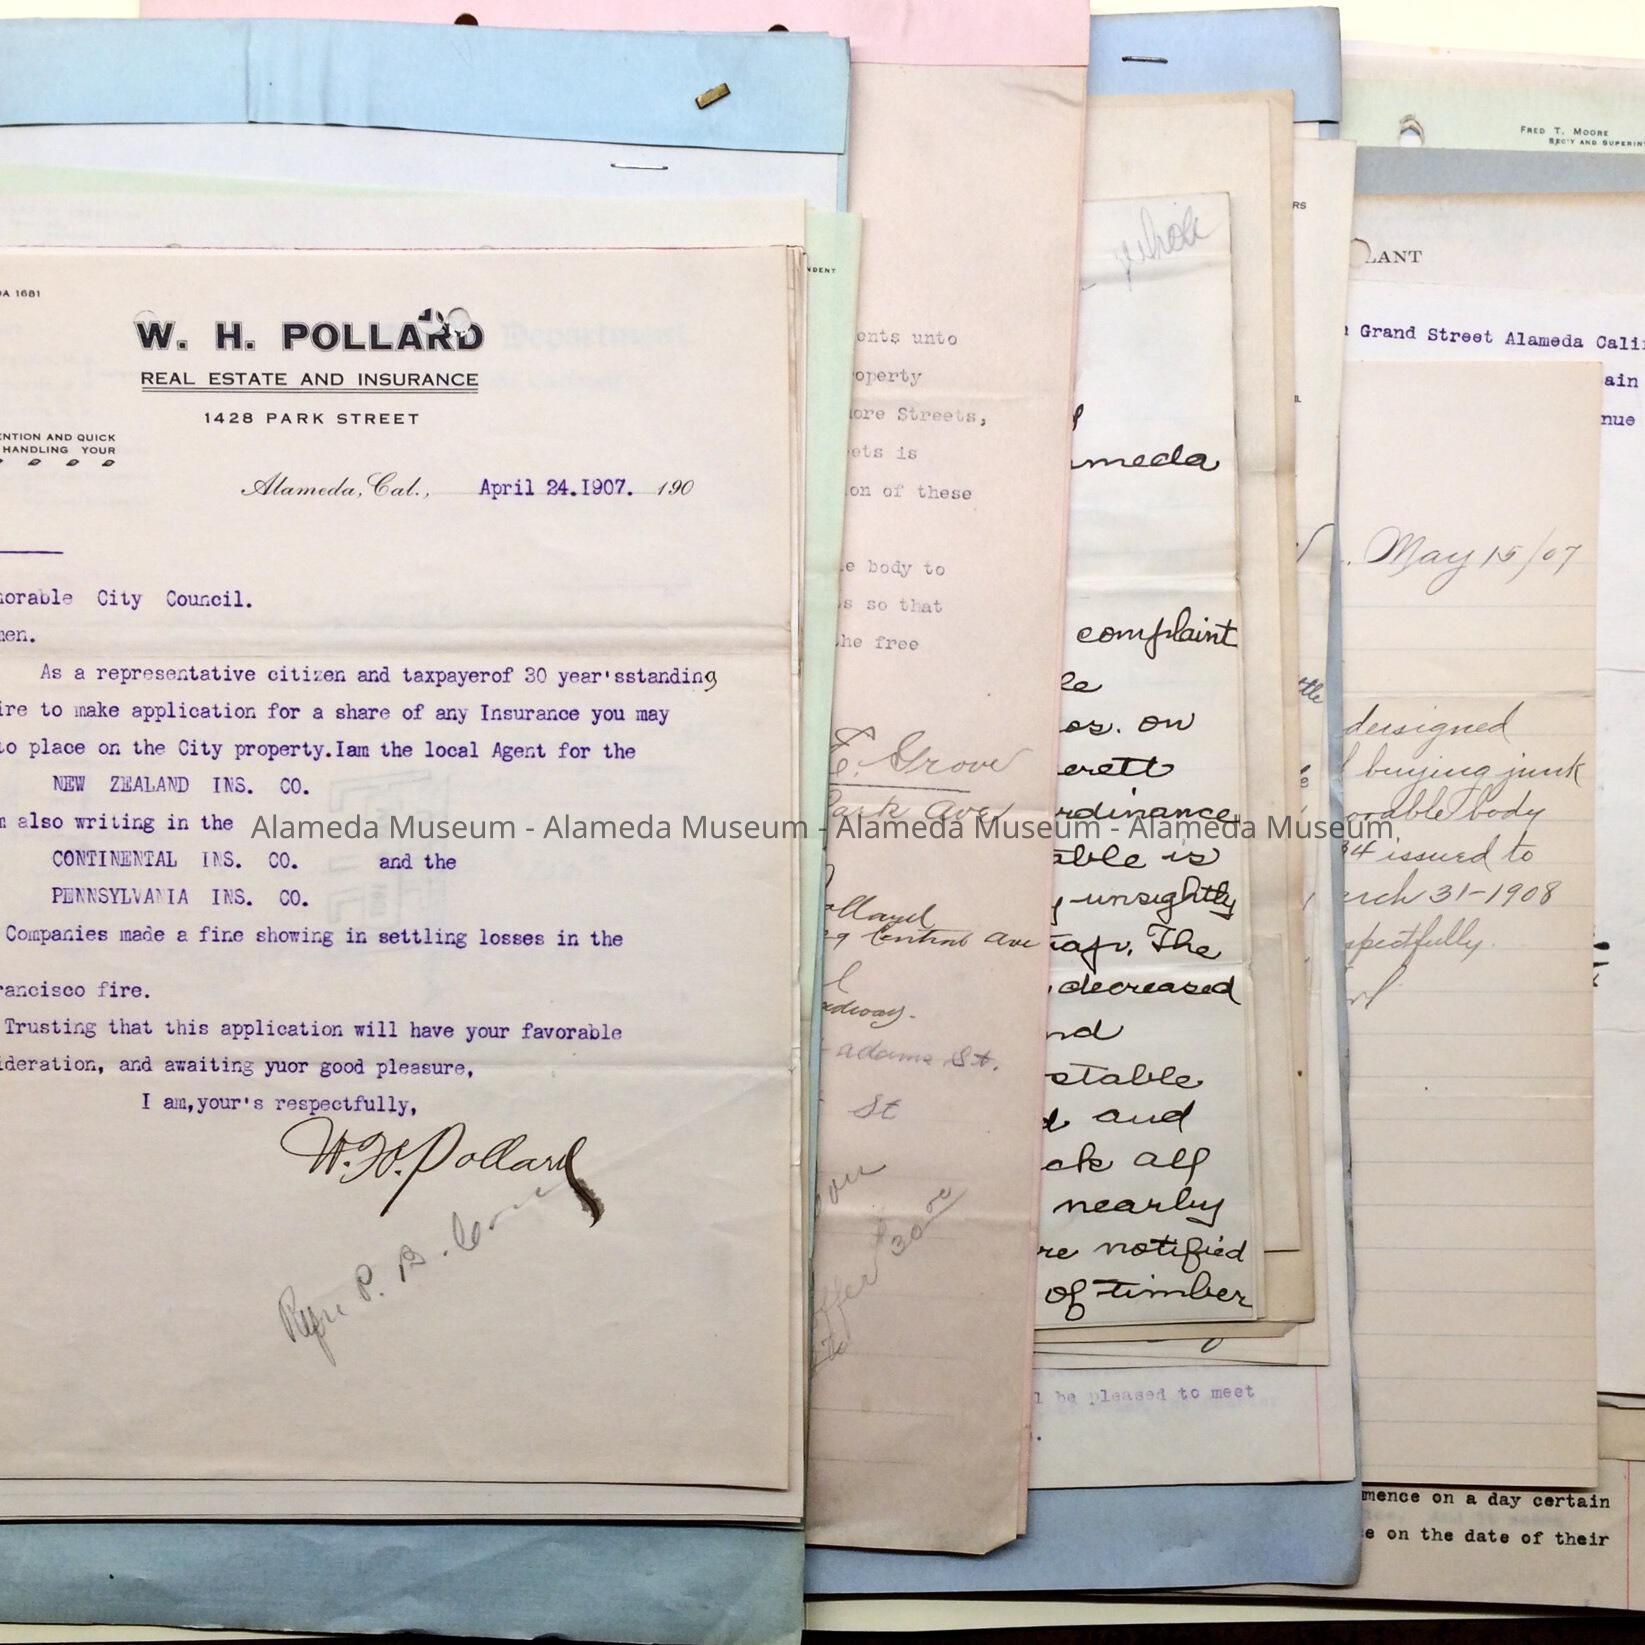 FRED T. MOORE
SEC'Y AND SUPERIN
OA 1681
W. H. POLLARD
REAL ESTATE AND INSURANCE
1428 PARK STREET
ENTION AND QUICK
HANDLING YOUR
Alameda, Cal., April 24.1907. 190
norable City Council.
men.
As a representative citizen and taxpayerof 30 year'sstanding
ire to make application for a share of any Insurance you may
to place on the City property.Iam the local Agent for the
NEW ZEALAND INS. CO.
m also writing in the
CONTINENTAL INS. CO. and the
PENNSYLVANIA INS. CO.
Companies made a fine showing in settling losses in the
rancisco fire.
Trusting that this application will have your favorable
ideration, and awaiting yuor good pleasure,
I am,your's respectfully,
W.H.Pollard
P. B.
Alameda Museum - Alameda Museum - Alameda Museum - Alameda Museum,
NDENT
ents unto
operty
ore Streets,
ets is
on of these
e body to
s so that
he free
E. Grove
Park Ave
ollard
29 Central Ave
adway.
adams St.
St
offer 30 00
whole
ameda
complaint
le
os. on
erett
rdinance
able is
y unsightly
rap. The
decreased
nd
stable
d and
ck all
nearby
re notified
of timber
l be pleased to meet
RS
ttle
LANT
n Grand Street Alameda Calif
ain
nue
May 15/07
dersigned
buying junk
orable body
34 issued to
arch 31-1908
spectfully.
mence on a day certain
e on the date of their